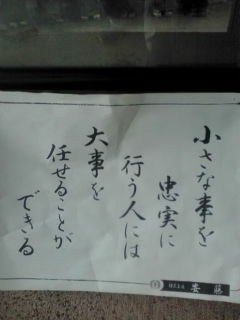 小さな事を
忠実に
行う人には
大事を
任せることが
できる
安藤